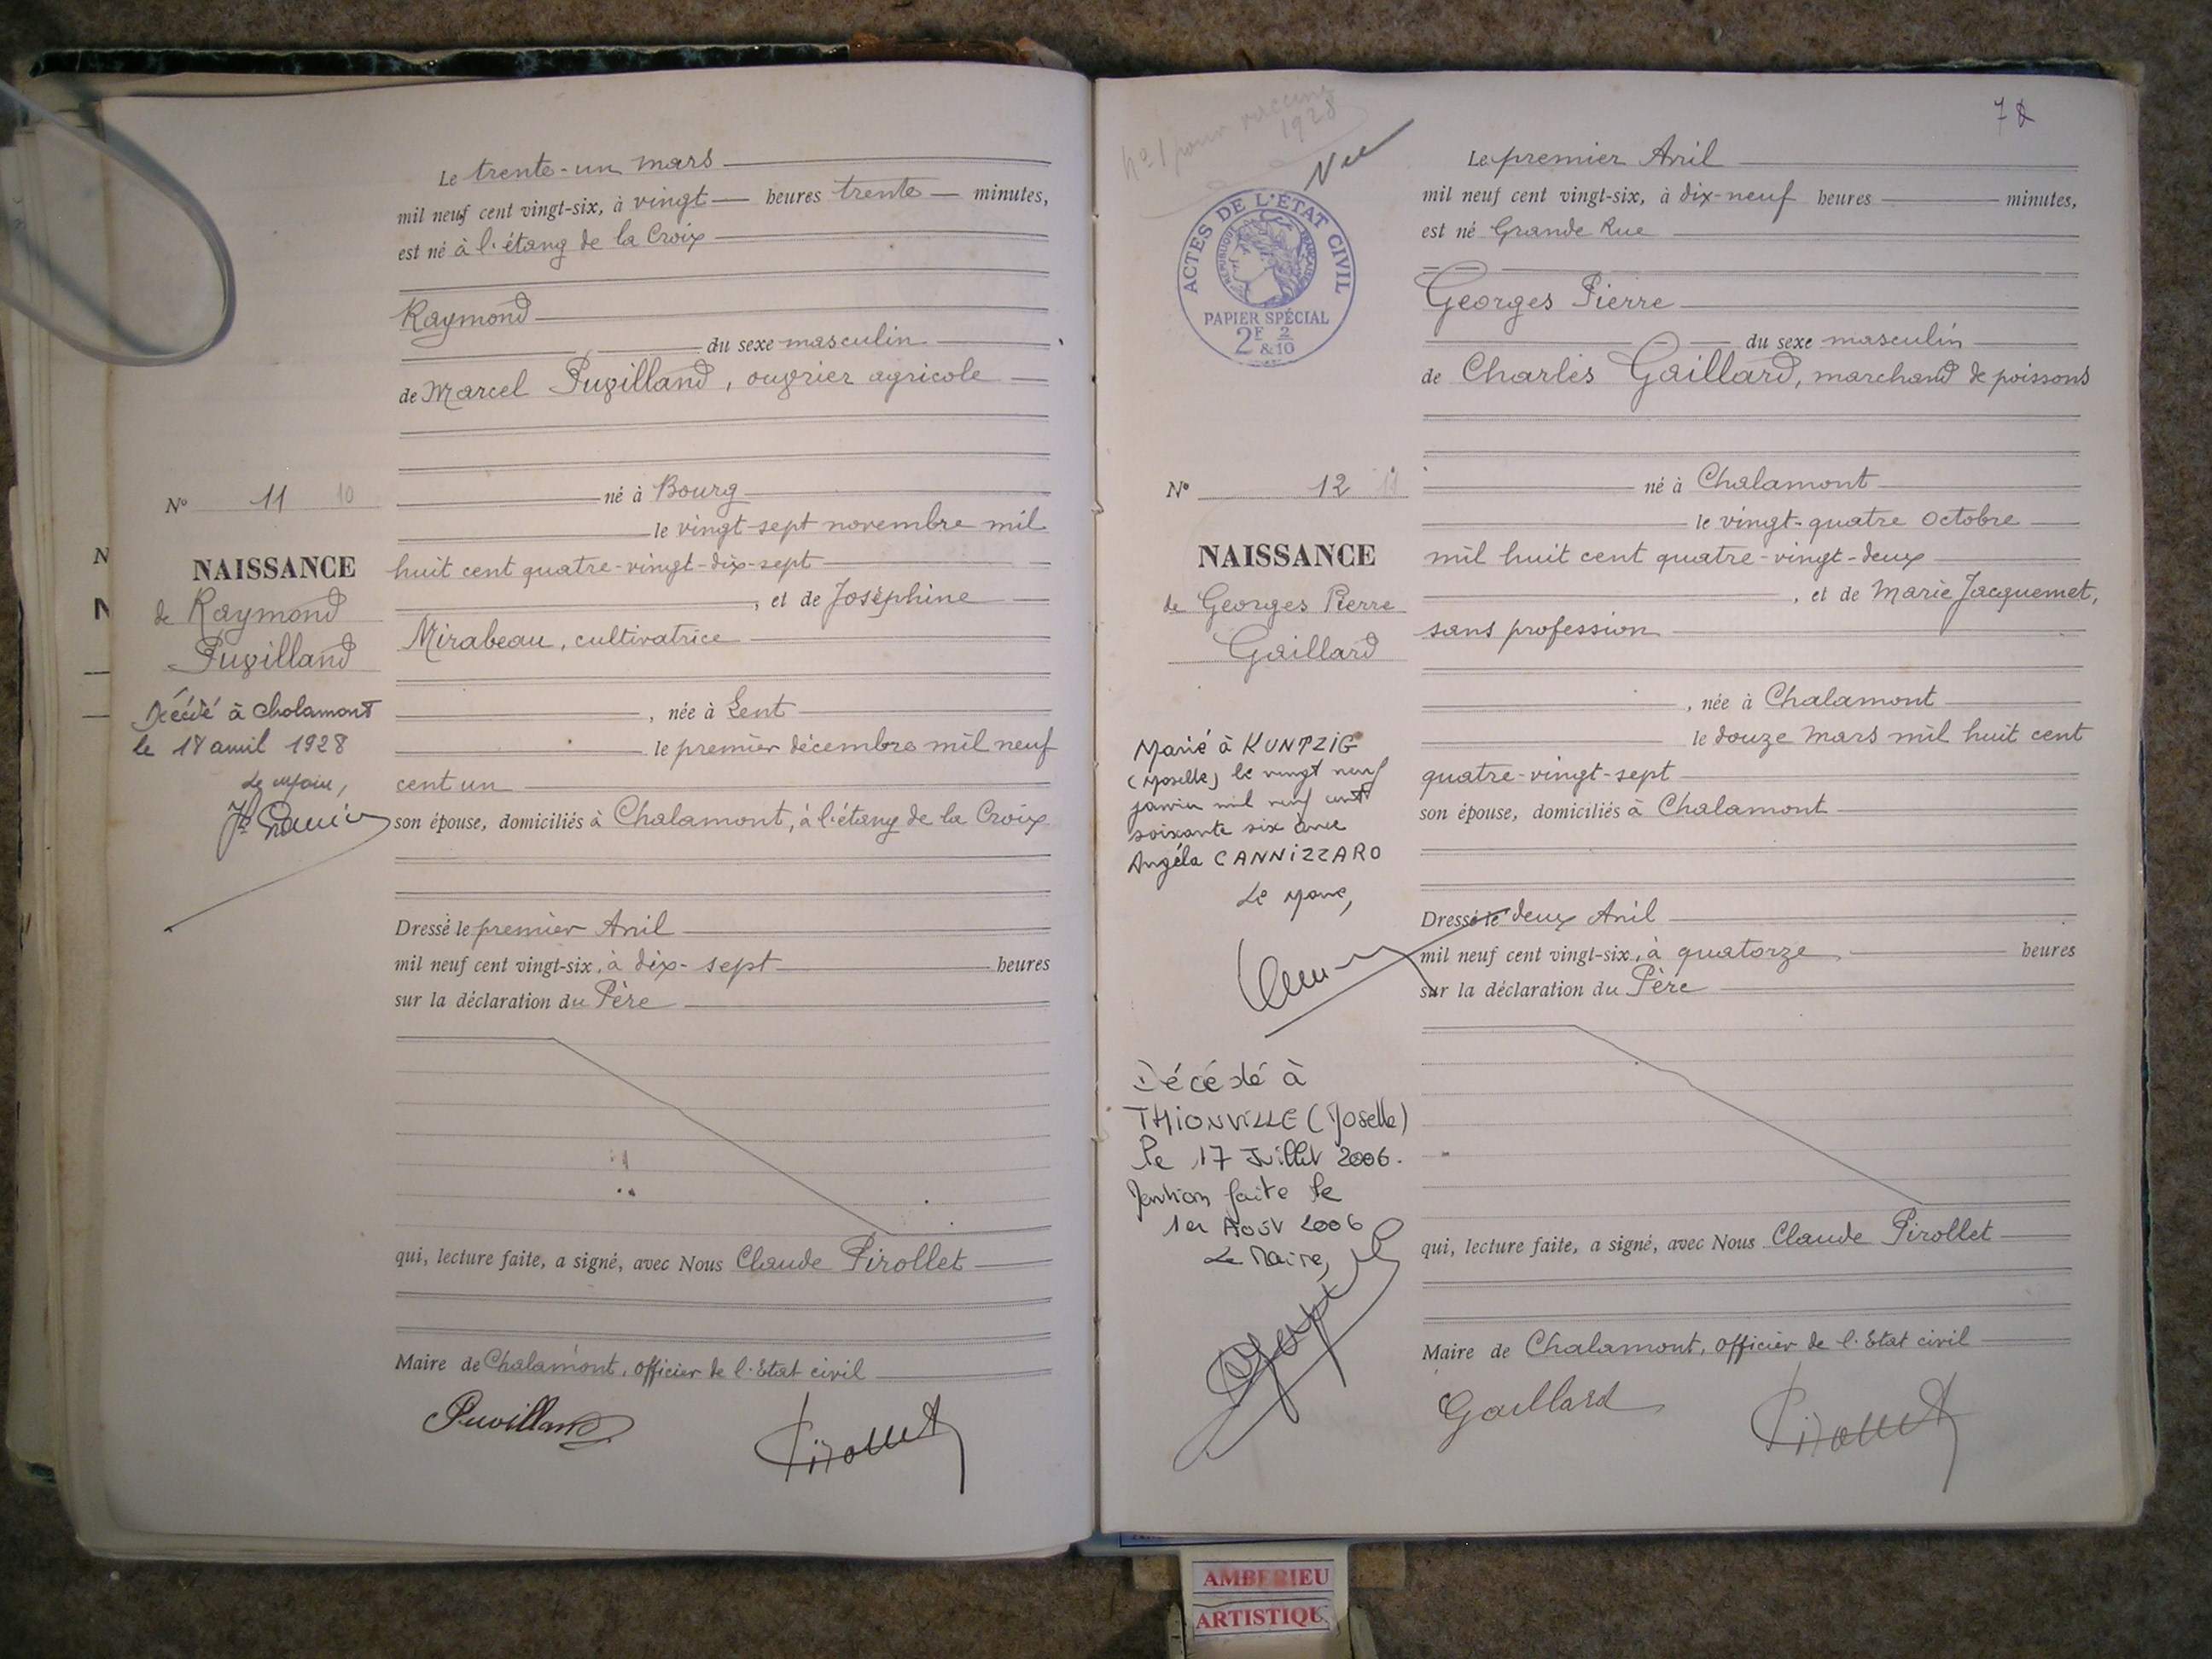 Le trente-un mars
mil neuf cent vingt-six, à vingt heures trente minutes,
est né à l'étang de la Croix
Raymond
du sexe masculin
de Marcel Puvilland, ouvrier agricole
né à Bourg
le vingt-sept novembre mil
huit cent quatre-vingt-dix-sept
, et de Joséphine
Mirabeau, cultivatrice
, née à Lent
le premier décembre mil neuf
cent un
son épouse, domiciliés à Chalamont, à l'étang de la Croix
Dressé le premier Avril
mil neuf cent vingt-six, à dix-sept heures
sur la déclaration du Père
qui, lecture faite, a signé, avec Nous Claude Pirollet
Maire de Chalamont, officier de l'Etat civil
Puvilland
Pirollet
N° 11 10
NAISSANCE
de Raymond
Puvilland
Décédé à Chalamont
le 18 avril 1928
Le Maire,
7
N° 1 pour vaccine
1928
Vu
ACTES DE L'ÉTAT CIVIL
RÉPUBLIQUE FRANÇAISE
PAPIER SPÉCIAL
2F 2
&10
Le premier Avril
mil neuf cent vingt-six, à dix-neuf heures minutes,
est né Grande Rue
Georges Pierre
du sexe masculin
de Charles Gaillard, marchand de poissons
né à Chalamont
le vingt-quatre Octobre
mil huit cent quatre-vingt-deux
, et de Marie Jacquemet,
sans profession
, née à Chalamont
le douze Mars mil huit cent
quatre-vingt-sept
son épouse, domiciliés à Chalamont
Dressé le deux Avril
mil neuf cent vingt-six, à quatorze heures
sur la déclaration du Père
qui, lecture faite, a signé, avec Nous Claude Pirollet
Maire de Chalamont, officier de l'Etat civil
Gaillard
Pirollet
N° 12 11
NAISSANCE
de Georges Pierre
Gaillard
Marié à KUNTZIG
(Moselle) le vingt neuf
janvier mil neuf cent
soixante six avec
Angéla CANNIZZARO
Le Maire,
Décédé à
THIONVILLE (Moselle)
le 17 Juillet 2006.
Mention faite le
1er Août 2006
Le Maire,
AMBERIEU
ARTISTIQU